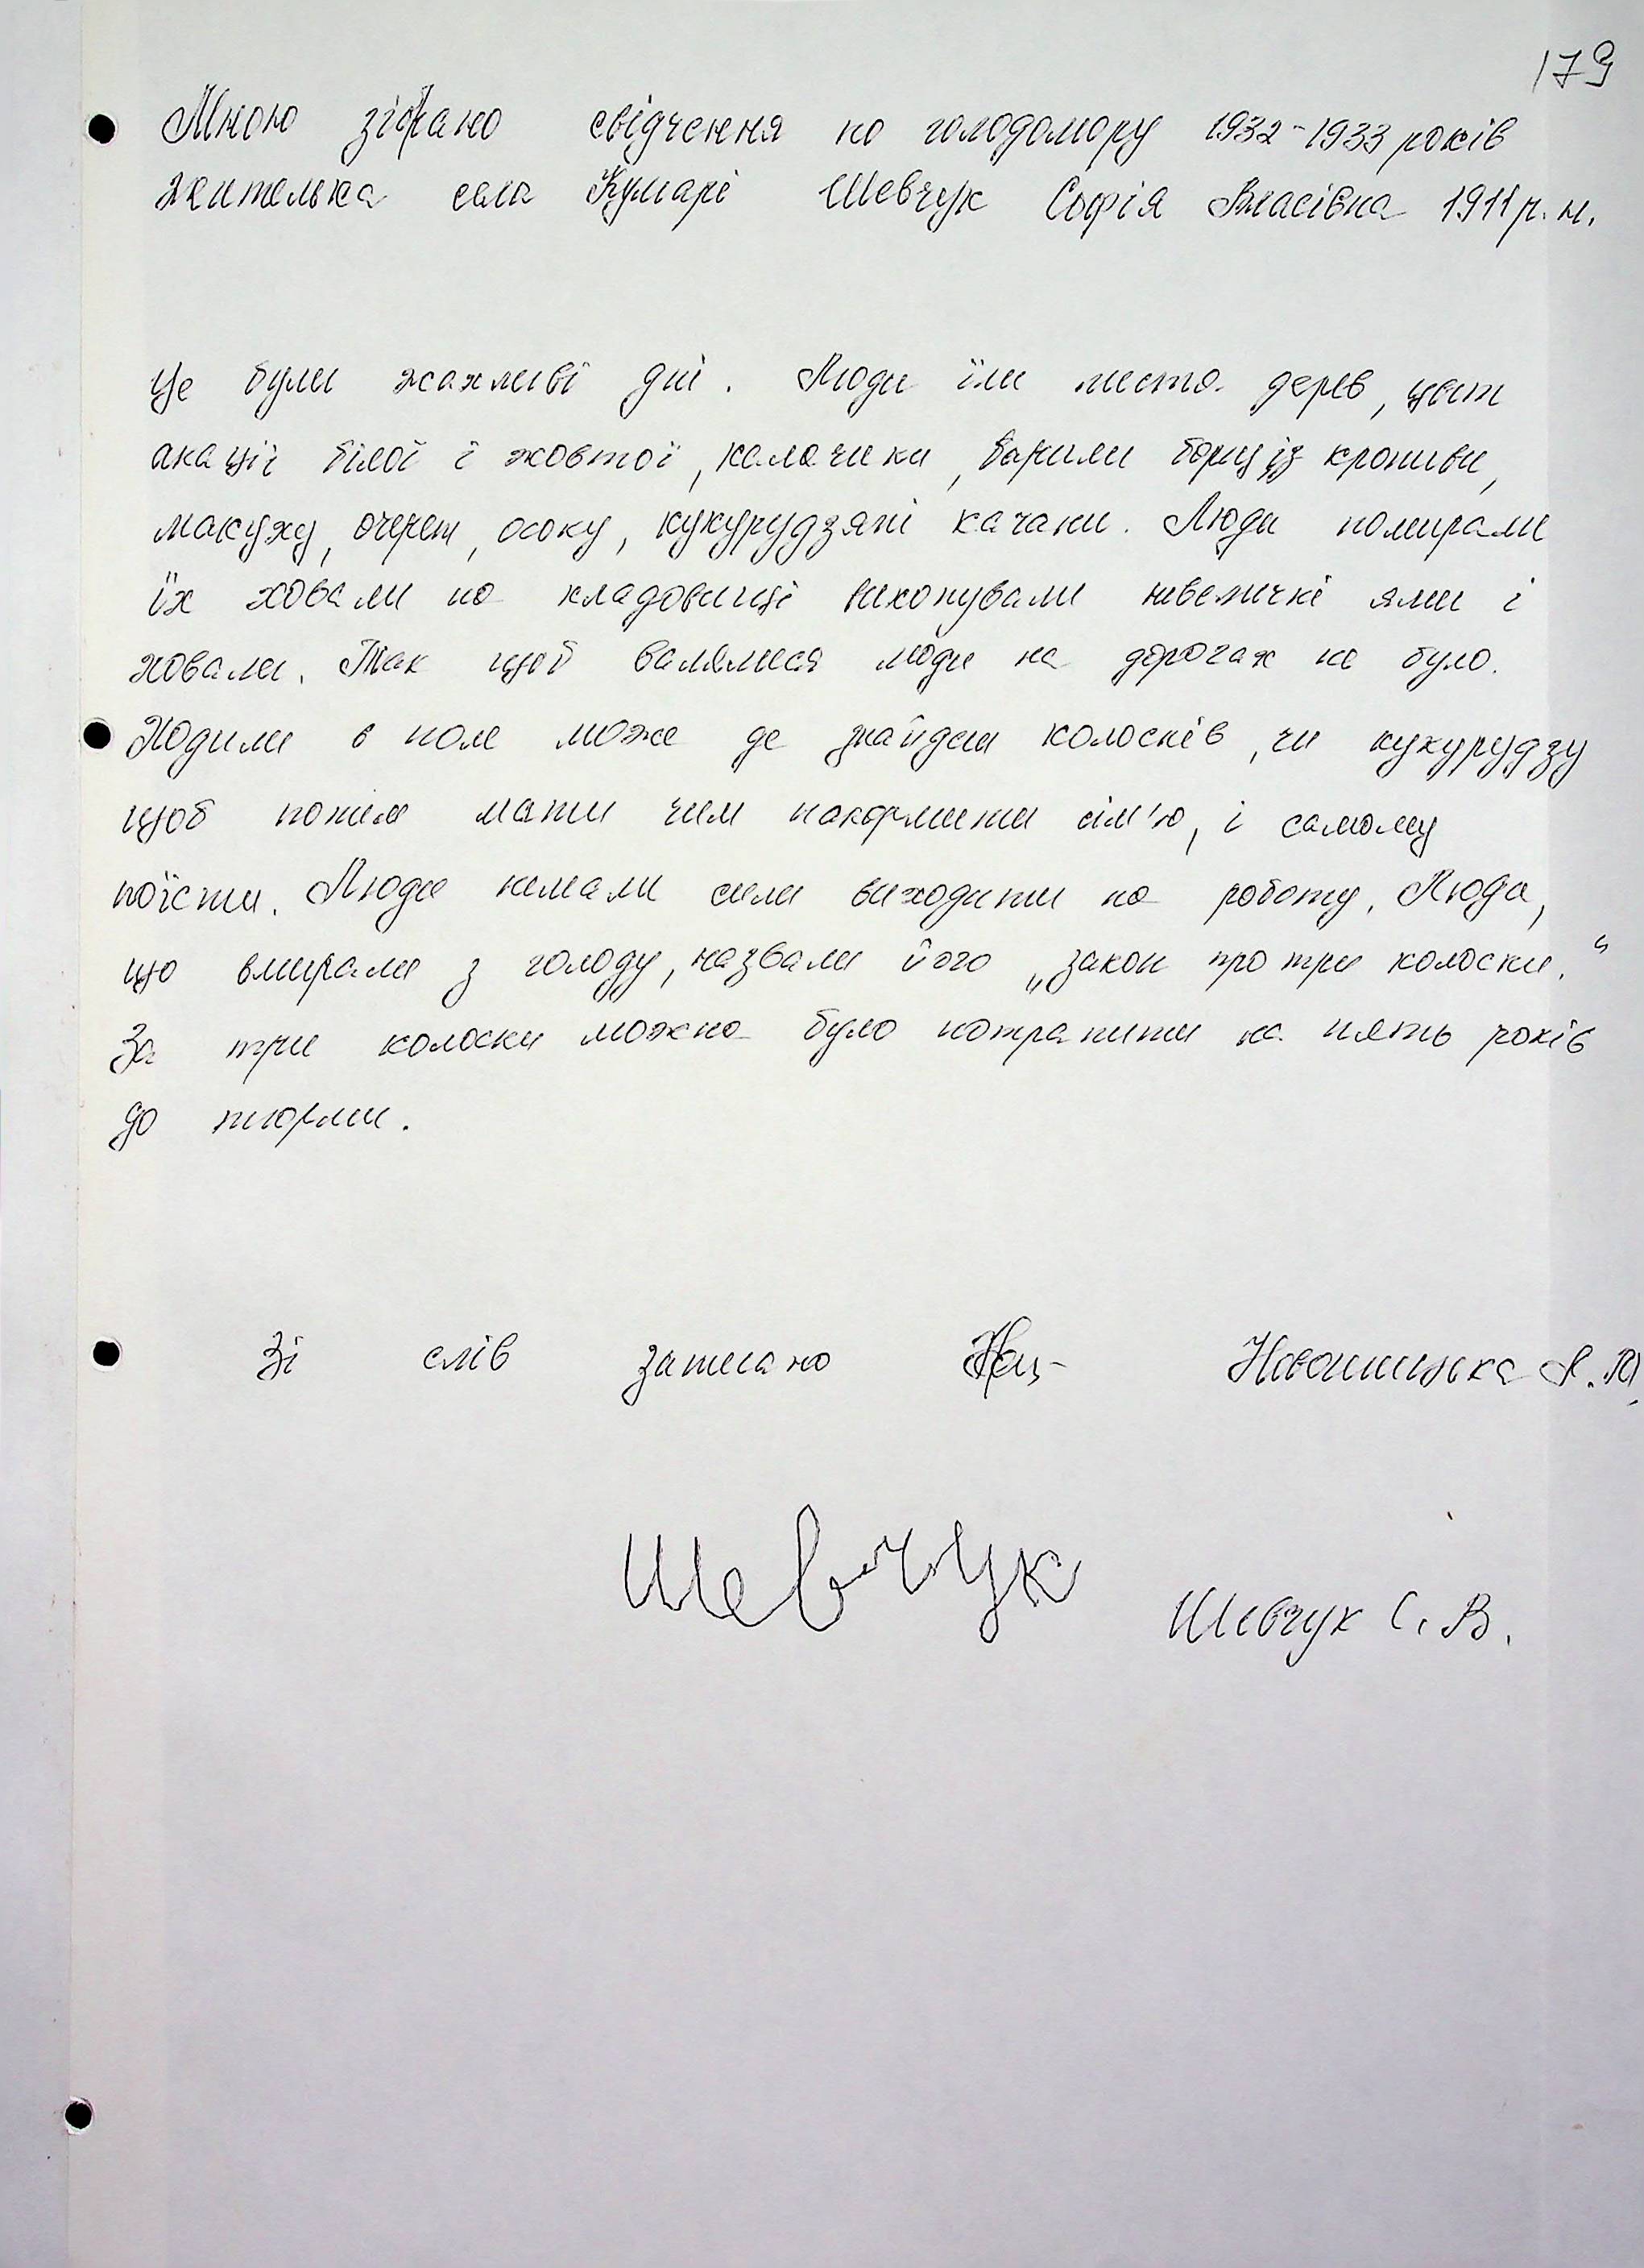 179
Мною зібрано свідчення по голодомору 1932-1933 років
жителька села Кумарі Шевчук Софія Власівна 1911 р. н.
Це були жахливі дні. Люди їли листя дерев, цвіт
акації білої і жовтої, калачики, варили борщ із кропиви,
макуху, очерет, осоку, кукурудзяні качани. Люди помирали
їх ховали на кладовищі викопували невеличкі ями і
ховали. Так щоб валялися люди на дорогах не було.
Ходили в поле може де знайдеш колосків, чи кукурудзу
щоб потім мати чим накормити сім'ю, і самому
поїсти. Люди немали сили виходити на роботу. Люди,
що вмирали з голоду, назвали його „закон про три колоски."
За три колоски можна було потрапити на пять років
до тюрми.
Зі слів записано
Шевчук
Шевчук С. В.